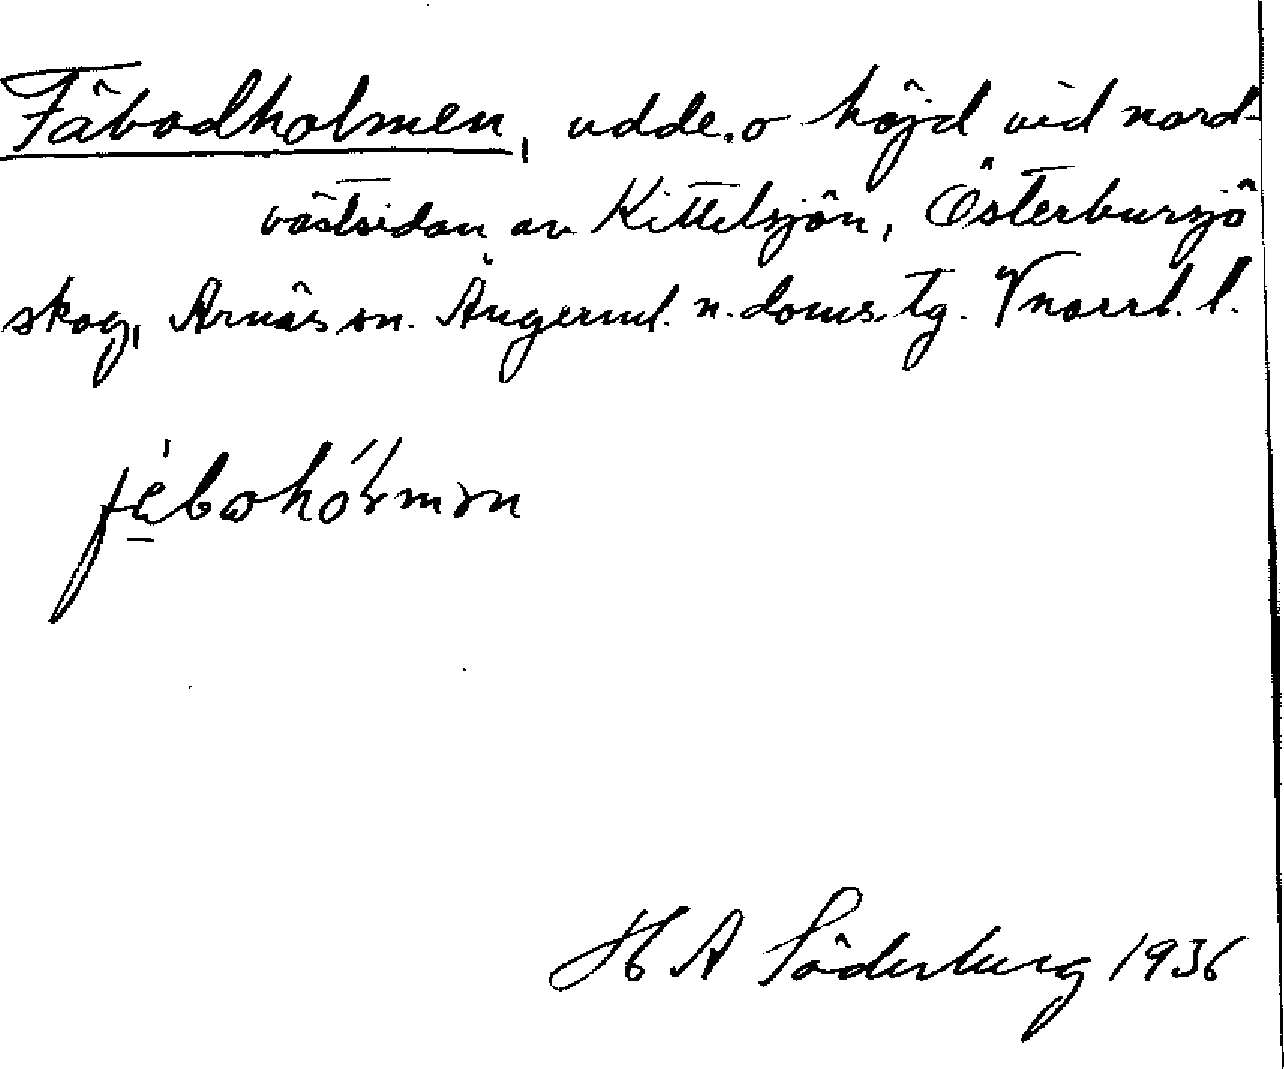 Fäbodholmen, udde o höjd vid nord-
västsidan av Kittelsjön, Österbursjö
skog, Arnäs sn. Ångerml. n. doms. tg. Vnorrl. l.
H A Söderberg 1936